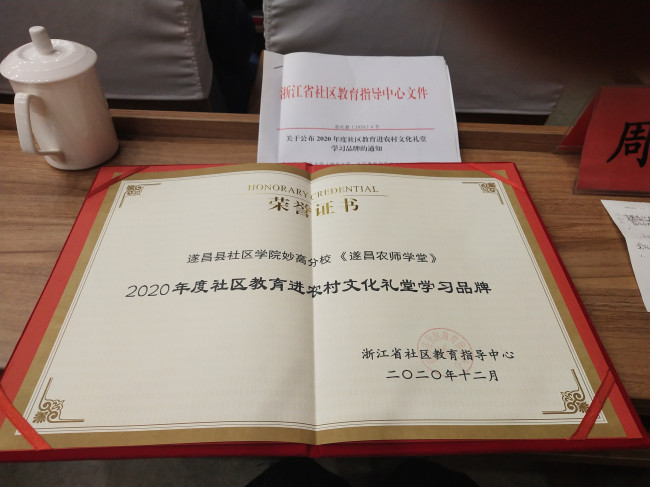 浙江省社区教育指导中心文件
关于公布2020年度社区教育进农村文化礼堂
学习品牌的通知
周
HONORARY CREDENTIAL
荣誉证书
遂昌县社区学院妙高分校《遂昌农师学堂》
2020年度社区教育进农村文化礼堂学习品牌
浙江省社区教育指导中心
二〇二〇年十二月